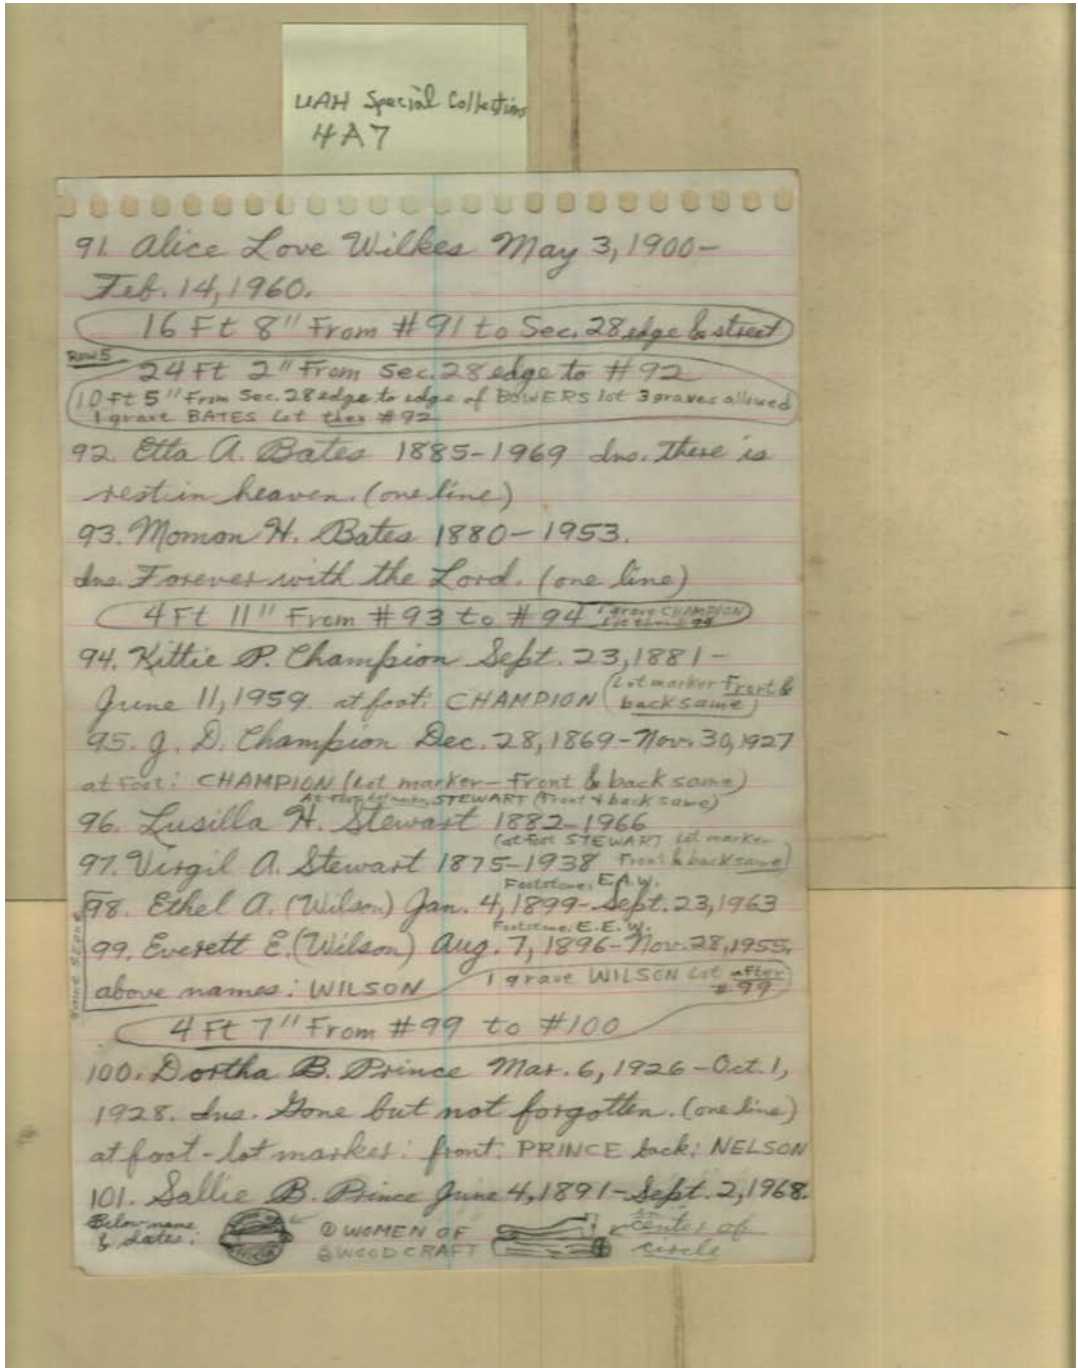 UAH Special Collections
4A7
91. Alice Love Wilkes May 3, 1900-
Feb. 14, 1960.
16 Ft 8" From #91 to Sec. 28 edge & street
Row 5
24 Ft 2" From Sec. 28 edge to #92
10 Ft 5" From Sec. 28 edge to edge of BOWERS lot 3 graves allowed
1 grave BATES Lot then #92
92. Etta A. Bates 1885-1969 Ins. There is
rest in heaven. (one line)
93. Momon H. Bates 1880-1953.
Ins. Forever with the Lord. (one line)
4 Ft 11" From #93 to #94 1 grave CHAMPION
94. Kittie P. Champion Sept. 23, 1881-
June 11, 1959. at foot: CHAMPION (Lot marker Front &
back same)
95. J. D. Champion Dec. 28, 1869-Nov. 30, 1927
at Foot: CHAMPION (Lot marker- Front & back same)
STEWART (Front & back same)
96. Lusilla H. Stewart 1882-1966
(at foot STEWART Lot marker
97. Virgil A. Stewart 1875-1938 Front & back same)
Footstone: E.A.W.
98. Ethel A. (Wilson) Jan. 4, 1899-Sept. 23, 1963
Footstone: E.E.W.
99. Everett E. (Wilson) Aug. 7, 1896-Nov. 28, 1955.
Same Stone
above names: WILSON 1 grave WILSON Lot after
#99
4 Ft 7" From #99 to #100
100. Dortha B. Prince Mar. 6, 1926-Oct. 1,
1928. Ins. Gone but not forgotten. (one line)
at foot-lot marker: front: PRINCE back: NELSON
101. Sallie B. Prince June 4, 1891-Sept. 2, 1968.
Below name
& dates: ① WOMEN OF in center of
② WOODCRAFT circle